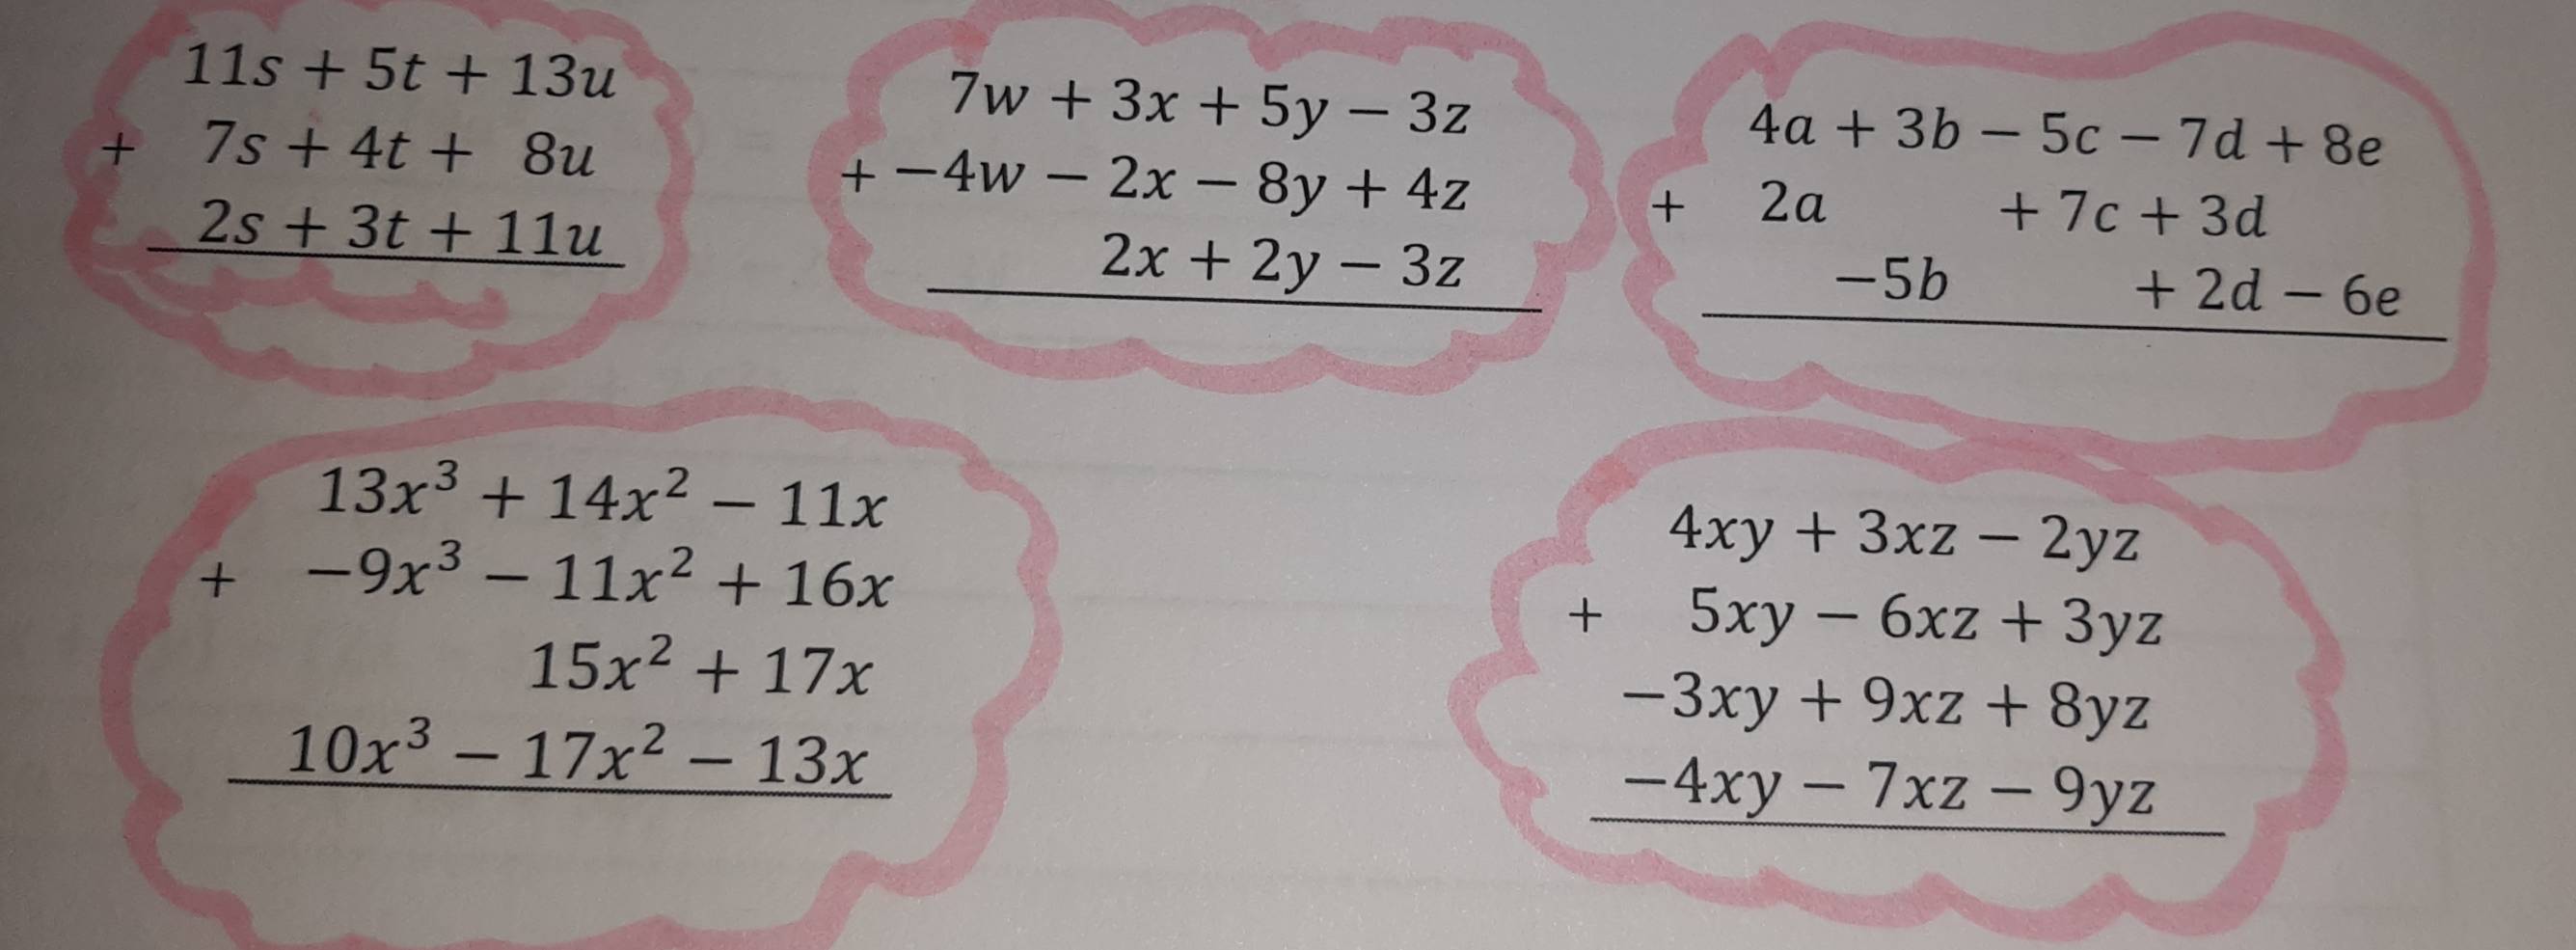 11s + 5t + 13u
+ 7s + 4t + 8u
2s + 3t + 11u
7w + 3x + 5y − 3z
+ −4w − 2x − 8y + 4z
2x + 2y − 3z
4a + 3b − 5c − 7d + 8e
+ 2a + 7c + 3d
−5b + 2d − 6e
13x³ + 14x² − 11x
+ −9x³ − 11x² + 16x
15x² + 17x
10x³ − 17x² − 13x
4xy + 3xz − 2yz
+ 5xy − 6xz + 3yz
−3xy + 9xz + 8yz
−4xy − 7xz − 9yz